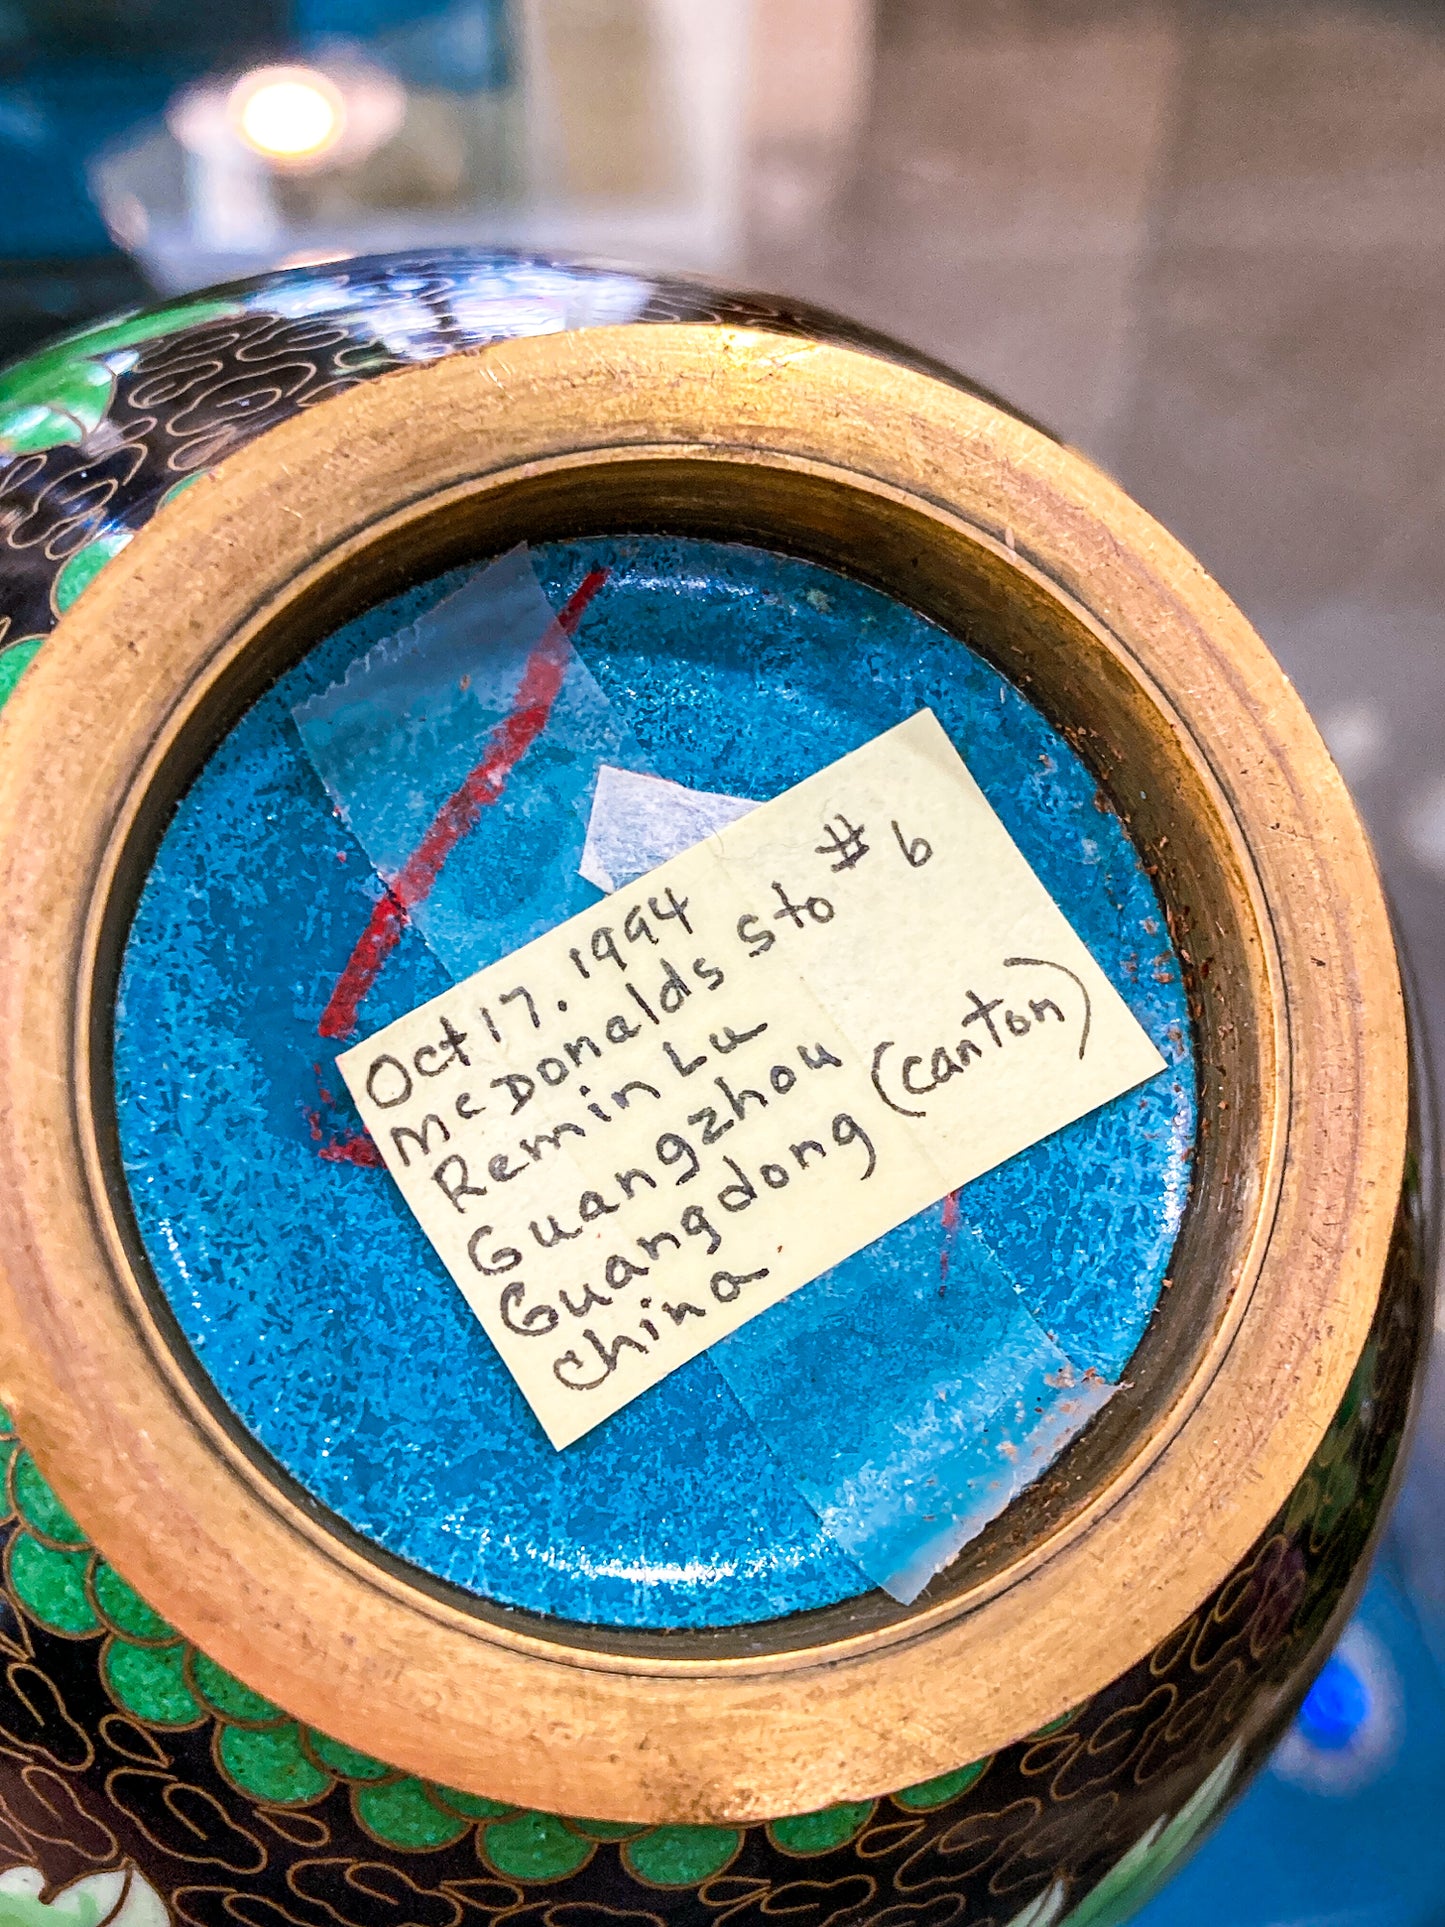 Oct 17. 1994
McDonalds sto #6
Remin Lu
Guangzhou
Guangdong (canton)
china